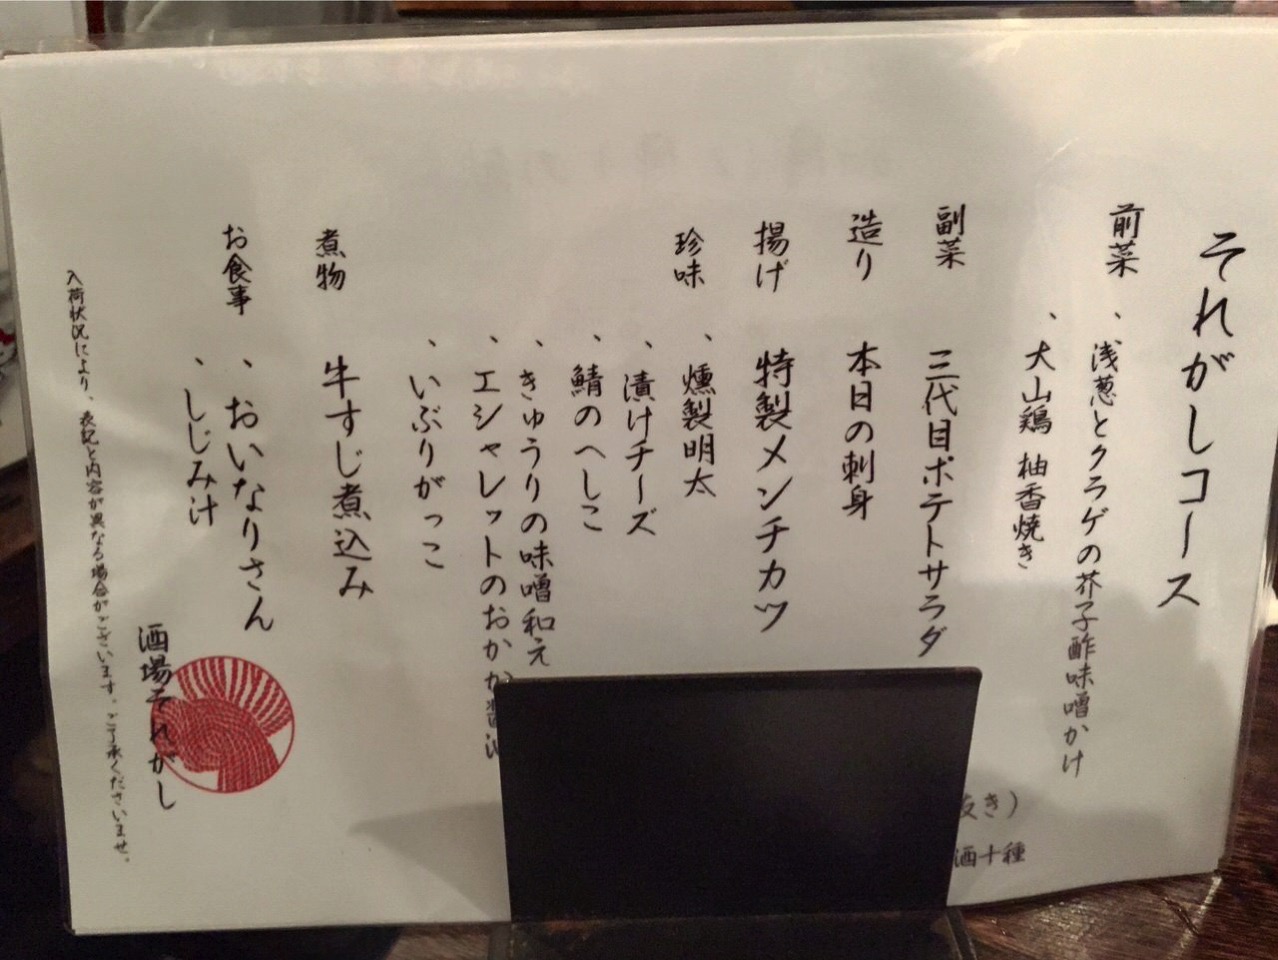 それがしコース
前菜
、浅葱とクラゲの芥子酢味噌かけ
、大山鶏 柚香焼き
副菜 三代目ポテトサラダ
造り 本日の刺身
揚げ 特製メンチカツ
珍味 、燻製明太
、漬けチーズ
、鯖のへしこ
、きゅうりの味噌和え
、エシャレットのおかか醤油
、いぶりがっこ
煮物 牛すじ煮込み
お食事 、おいなりさん
、しじみ汁
入荷状況により、表記と内容が異なる場合がございます。ご了承くださいませ。
酒場それがし
き）
酒十種